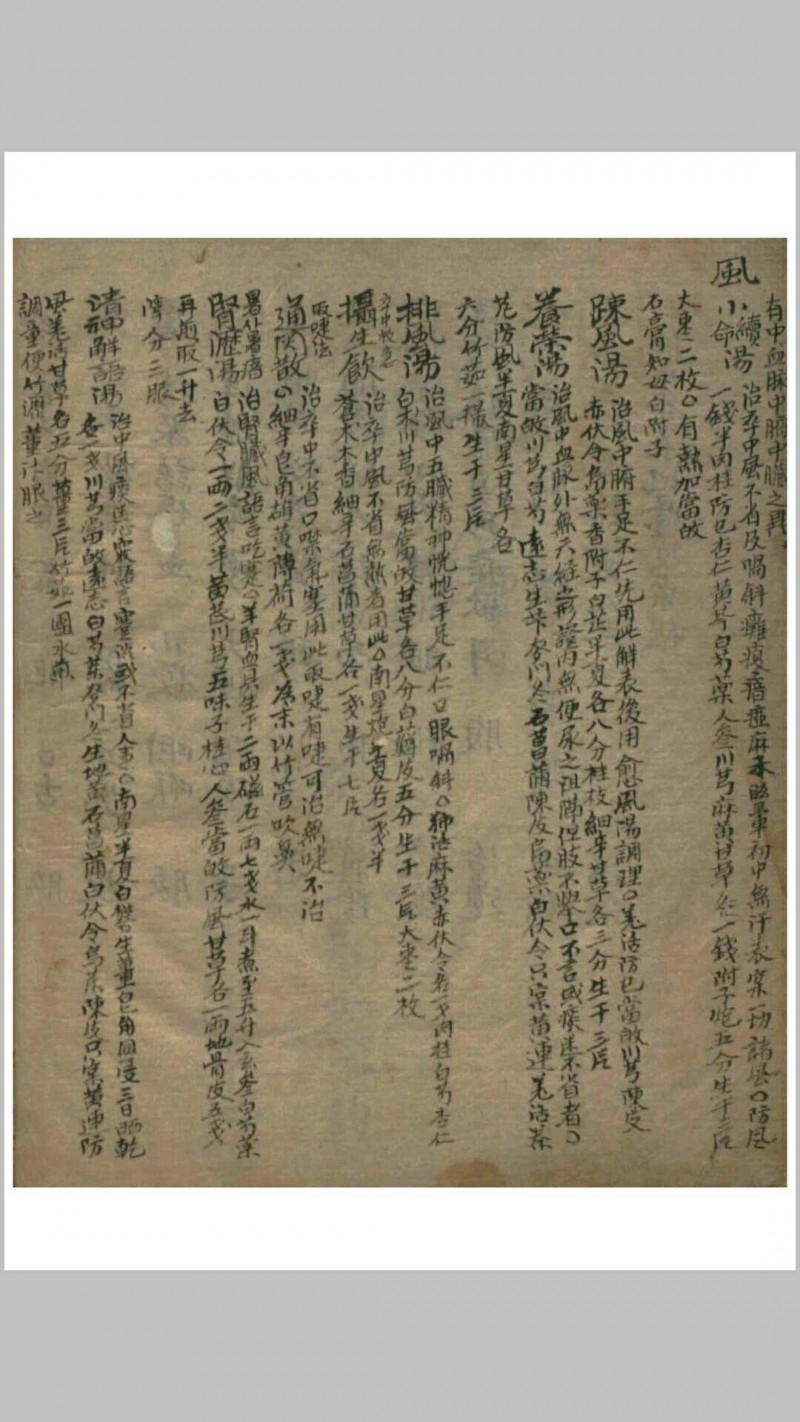 風
有中血脉中腑中臟之異
小續命湯 治卒中風不省及喎斜癱瘓瘖瘂麻木眩暈初中無汗表実一切諸風○防風
一錢半肉桂防已杏仁黄芩白芍薬人参川芎麻黄甘草各一錢附子炮五分生干三片
大枣二枚○有熱加當皈
石膏知母白附子
踈風湯 治風中腑手足不仁先用此解表後用愈風湯調理○羌活防已當皈川芎陳皮
赤伏令烏薬香附子白芷半夏各八分桂枝細辛甘草各三分生干三片
養榮湯 治風中血脉外無六経之形證内無便尿之阻隔但肢不挙口不言或痰迷不省者○
當皈川芎白芍遠志生苄麦門冬石菖蒲陳皮烏薬白伏令只実黄連羌活秦
芃防風半夏南星甘草各
六分竹茹一撮生干三片
排風湯 治風中五臓精神恍惚手足不仁口眼喎斜○独活麻黄赤伏令各一戋肉桂白芍杏仁
白朮川芎防風當皈甘草各八分白蘚皮五分生干三片大枣二枚
攝生飲 治卒中風不省無熱者用此○南星炮半夏各一戋半
蒼朮木香細辛石菖蒲甘草各一戋生干七片
取嚏法
通関散 治卒中不省口噤氣塞用此取嚏有嚏可治無嚏不治
○細辛皂角雄黄薄荷各一戋為末以竹管吹鼻
腎瀝湯 治腎臓風語言吃蹇○羊腎一具生干二両磁石一両七戋水一斗煮至五升入玄参白芍薬
白伏令一両二戋半黄芪川芎五味子桂心人参當皈防風甘草各一両地骨皮五戋
再煎取一升去
滓分三服
清神解語湯 治中風痰迷心竅語言蹇渋或不省人事○南星半夏白礬生薑皂角同浸三日晒乾
各一戋川芎當皈遠志白芍薬麦門冬生地黄石菖蒲白伏令烏薬陳皮只実黄連防
風羌活甘草各五分薑三片竹茹一團水煎
調童便竹瀝薑汁服之